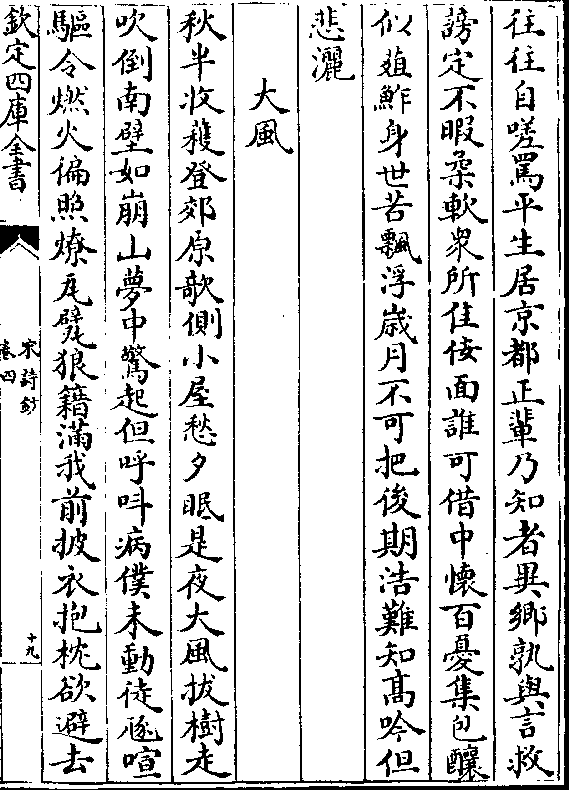 往往自嗟罵平生居京都正輩乃知者異鄉孰與言救
謗定不暇柔軟衆所佳佞面誰可借中懷百憂集包釀
似葅鮓身世苦飄浮歳月不可把後期浩難知髙吟但
悲灑
大風
秋半收穫登郊原欹側小屋愁夕眠是夜大風拔樹走
吹倒南壁如崩山夢中驚起但呼叫病僕未動徒喧
驅令燃火徧照燎瓦甓狼籍滿我前披衣抱枕欲避去
欽定四庫全書
宋詩鈔
卷四
十九